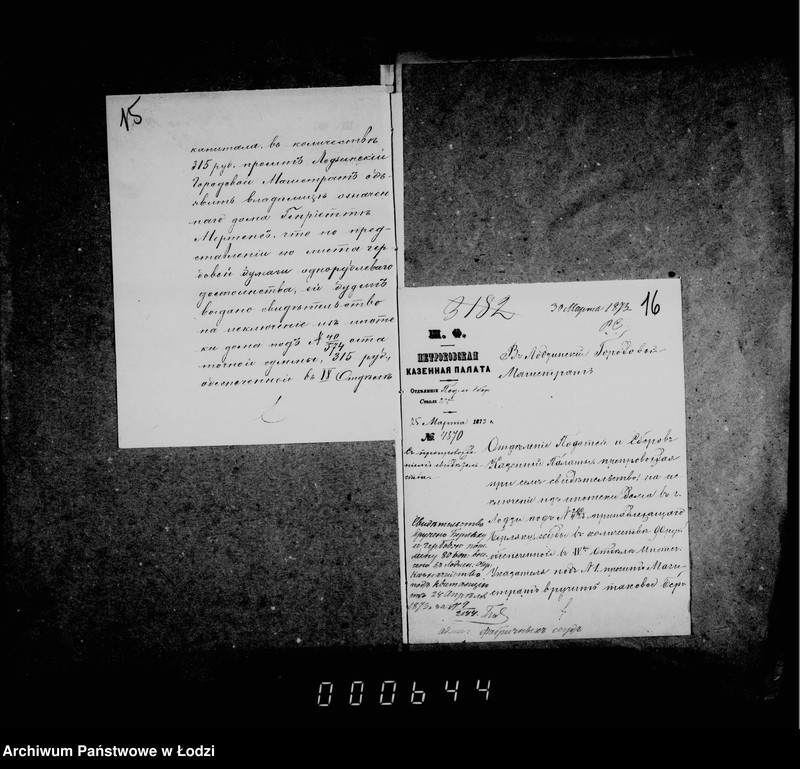 №5
капитала, въ количествѣ
315 руб., проситъ Лодзинскій
Городовой Магистратъ объ-
явить владѣлицѣ означен
наго дома Генріетѣ
Мертенсъ, что по пред-
ставленіи ею листа гер
бовой бумаги однорублеваго
достоинства, ей будетъ
выдано свидѣтельство
на исключеніе изъ ипоте
ки дома подъ № 40/574 оста
точной суммы, 315 руб.,
обезпеченной въ IV Отдѣлѣ
3182
30 Марта 1873
16
М. Ф.
ПЕТРОКОВСКАЯ
КАЗЕННАЯ ПАЛАТА
Отдѣленіе
Столъ
25 Марта 1873 г.
№ 4370
Въ Лодзинскій Городовой
Магистратъ
Отдѣленіе Податей и Сборовъ
Казенной Палаты, препровождая
при семъ свидѣтельство на ис
ключеніе изъ ипотеки дома въ г.
Лодзи подъ № принадлежащаго
суммы въ количествѣ 90 руб
обезпеченной въ IV Отдѣлѣ Ипотеч
Указателя подъ №1, проситъ Маги-
стратъ вручить таковое
Свидѣтельство
вручено
и гербовую пош
лину 80 коп. вне
сено въ Лодзин.
Казначейство
подъ квитанціею
отъ 24 Апрѣля
1873 г. за №
000644
Archiwum Państwowe w Łodzi